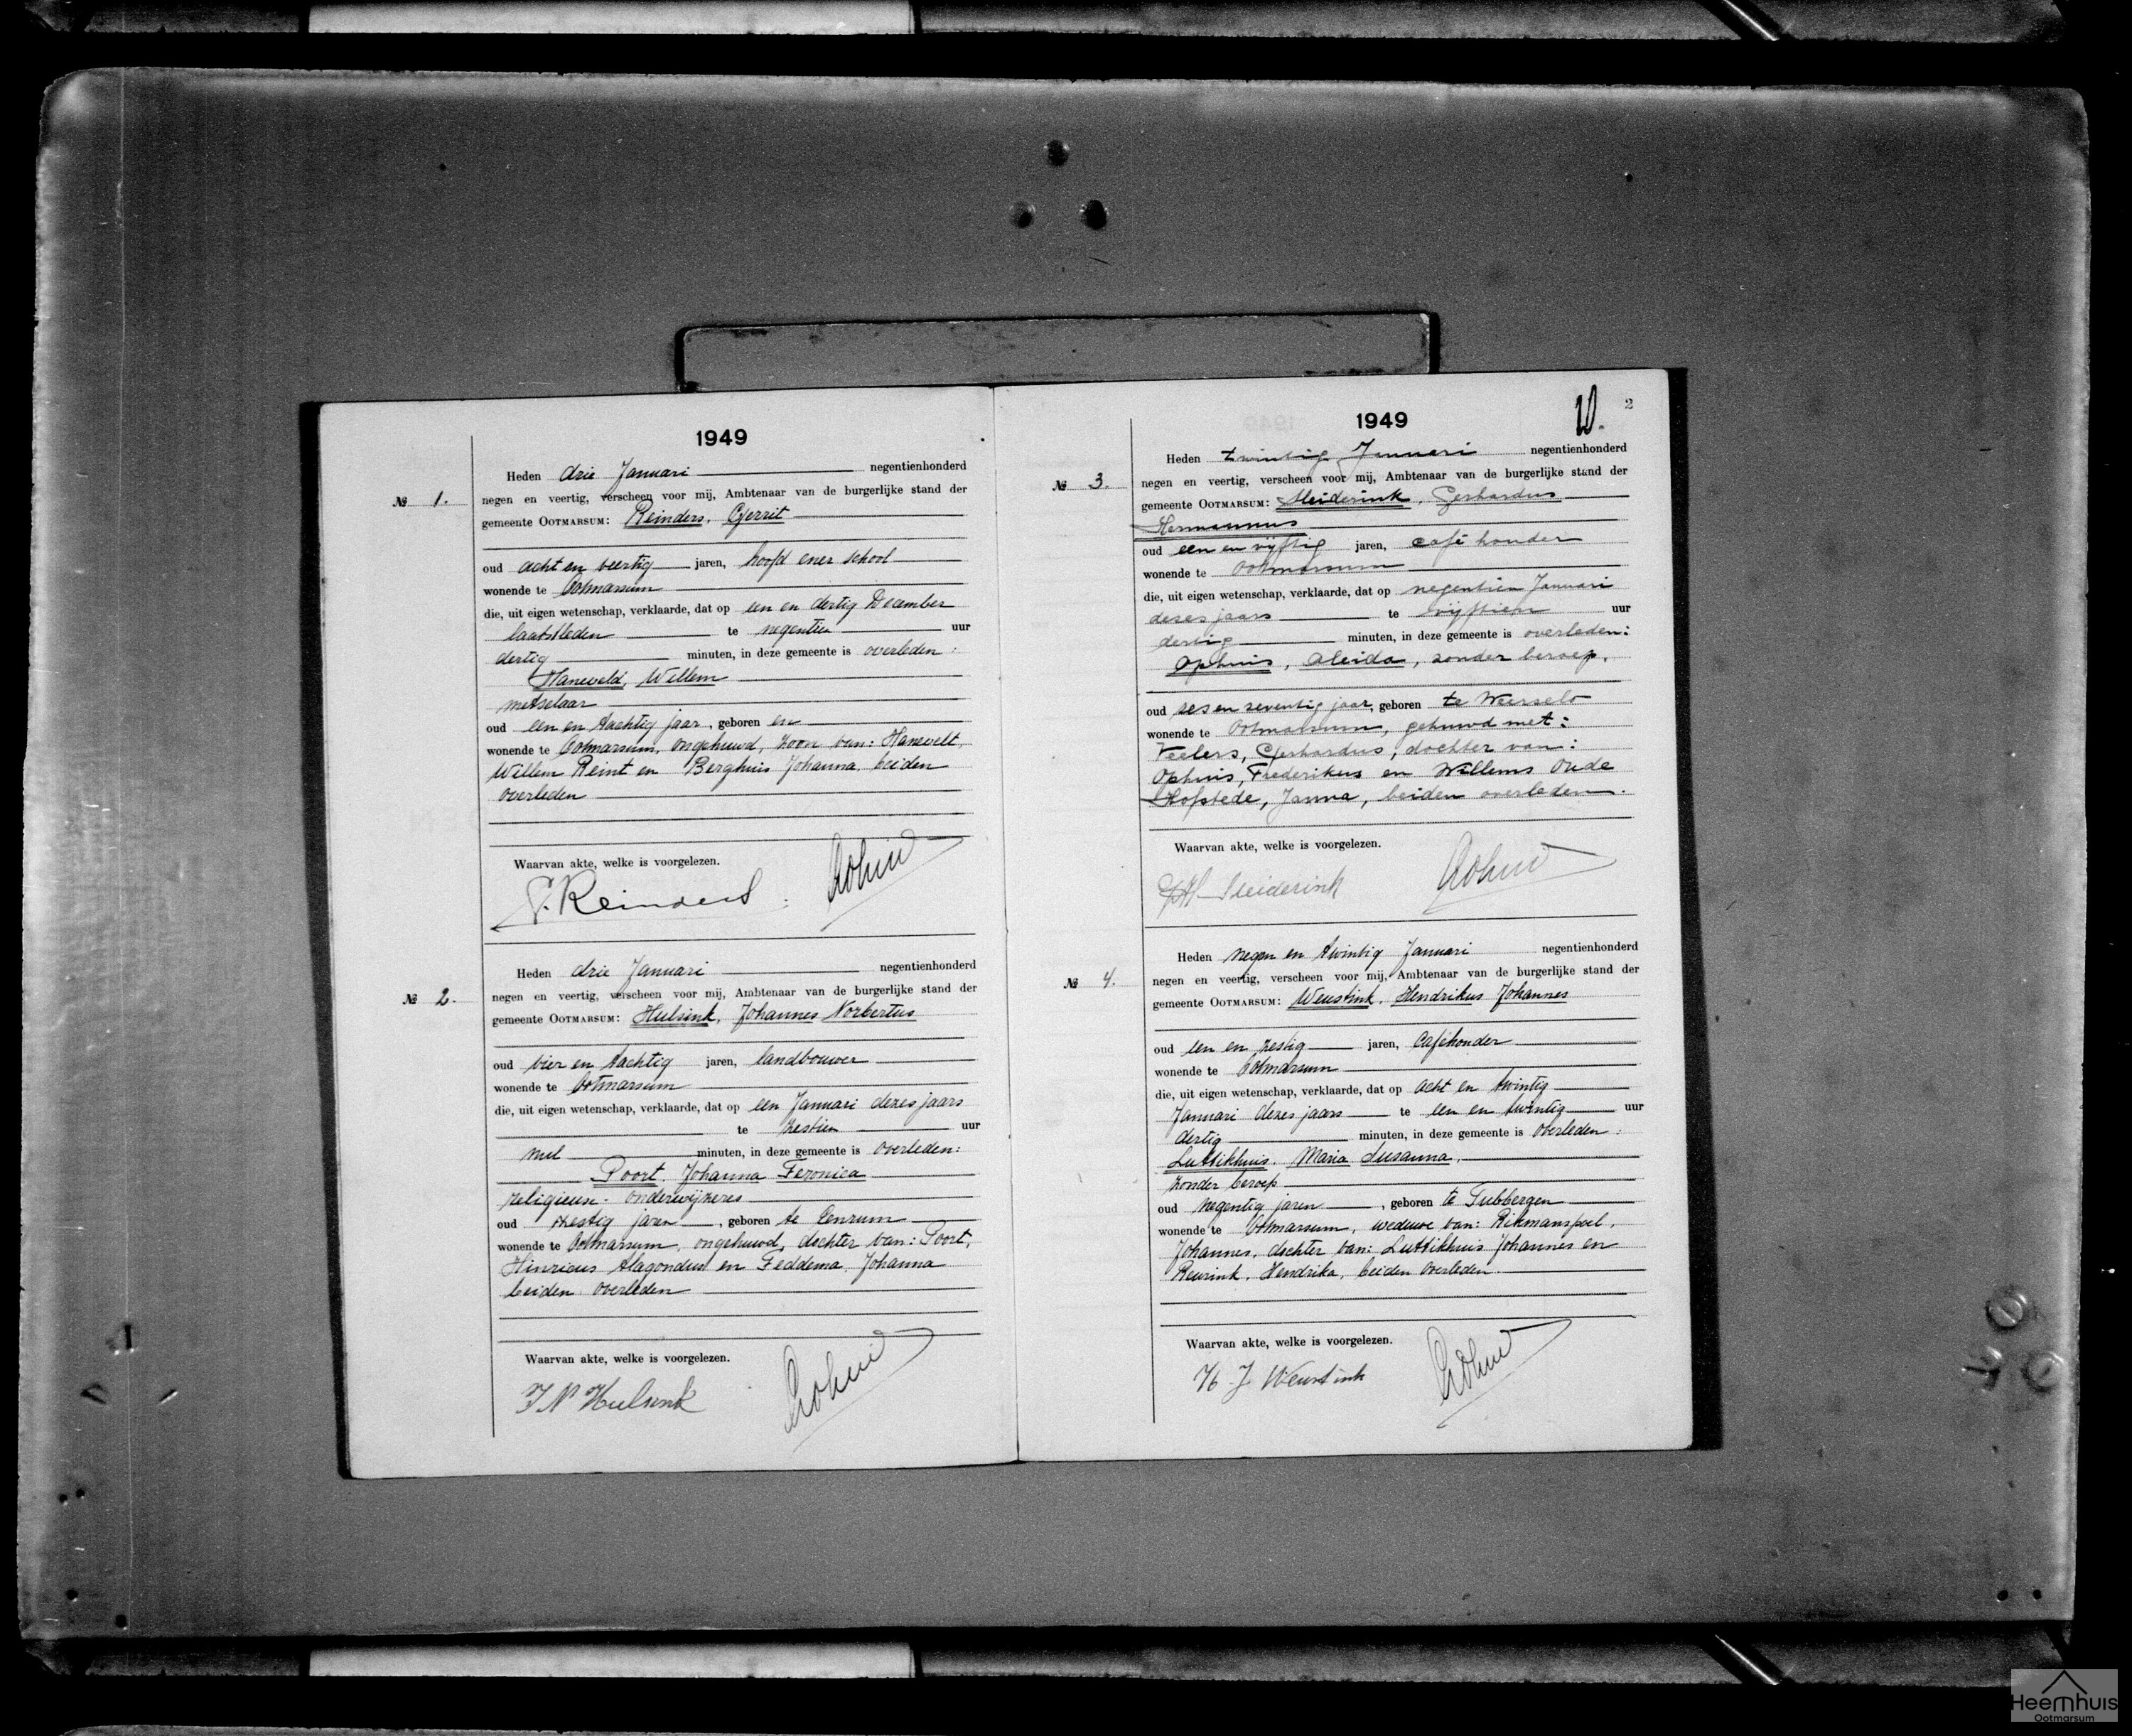 1949
Heden drie Januari negentienhonderd
№ 1.
negen en veertig, verscheen voor mij, Ambtenaar van de burgerlijke stand der
gemeente OOTMARSUM: Reinders, Gerrit
oud acht en veertig jaren, hoofd ener school
wonende te Ootmarsum
die, uit eigen wetenschap, verklaarde, dat op een en dertig December
laatstleden te negentien uur
dertig minuten, in deze gemeente is overleden:
Haneveld, Willem
metselaar
oud een en tachtig jaar, geboren en
wonende te Ootmarsum, ongehuwd, zoon van: Hanevelt,
Willem Reint en Berghuis Johanna, beiden
overleden
Waarvan akte, welke is voorgelezen.
G. Reinders
Heden drie Januari negentienhonderd
№ 2.
negen en veertig, verscheen voor mij, Ambtenaar van de burgerlijke stand der
gemeente OOTMARSUM: Hulsink, Johannes Norbertus
oud vier en tachtig jaren, landbouwer
wonende te Ootmarsum
die, uit eigen wetenschap, verklaarde, dat op een Januari dezes jaars
te zestien uur
nul minuten, in deze gemeente is overleden:
Poort, Johanna Feronica
religieuse-onderwijzeres
oud zestig jaren, geboren te Eenrum
wonende te Ootmarsum, ongehuwd, dochter van: Poort,
Hinricus Alagondus en Feddema, Johanna
beiden overleden
Waarvan akte, welke is voorgelezen.
J N Hulsink
10.
2
1949
Heden twintig Januari negentienhonderd
№ 3.
negen en veertig, verscheen voor mij, Ambtenaar van de burgerlijke stand der
gemeente OOTMARSUM: Sleiderink, Gerhardus
Hermannus
oud een en vijftig jaren, caféhouder
wonende te Ootmarsum
die, uit eigen wetenschap, verklaarde, dat op negentien Januari
dezes jaars te vijftien uur
dertig minuten, in deze gemeente is overleden:
Ophuis, Aleida, zonder beroep,
oud zes en zeventig jaar, geboren te Weerselo
wonende te Ootmarsum, gehuwd met:
Veelers, Gerhardus, dochter van:
Ophuis, Frederikus en Willems Oude
Hofstede, Janna, beiden overleden.
Waarvan akte, welke is voorgelezen.
GH Sleiderink
Heden negen en twintig Januari negentienhonderd
№ 4.
negen en veertig, verscheen voor mij, Ambtenaar van de burgerlijke stand der
gemeente OOTMARSUM: Weustink, Hendrikus Johannes
oud een en zestig jaren, Caféhouder
wonende te Ootmarsum
die, uit eigen wetenschap, verklaarde, dat op acht en twintig
Januari dezes jaars te een en twintig uur
dertig minuten, in deze gemeente is overleden:
Luttikhuis, Maria Susanna,
zonder beroep
oud negentig jaren, geboren te Tubbergen
wonende te Ootmarsum, weduwe van: Rikmanspoel,
Johannes, dochter van: Luttikhuis Johannes en
Reurink, Hendrika, beiden overleden.
Waarvan akte, welke is voorgelezen.
H J Weustink
Heemhuis
Ootmarsum